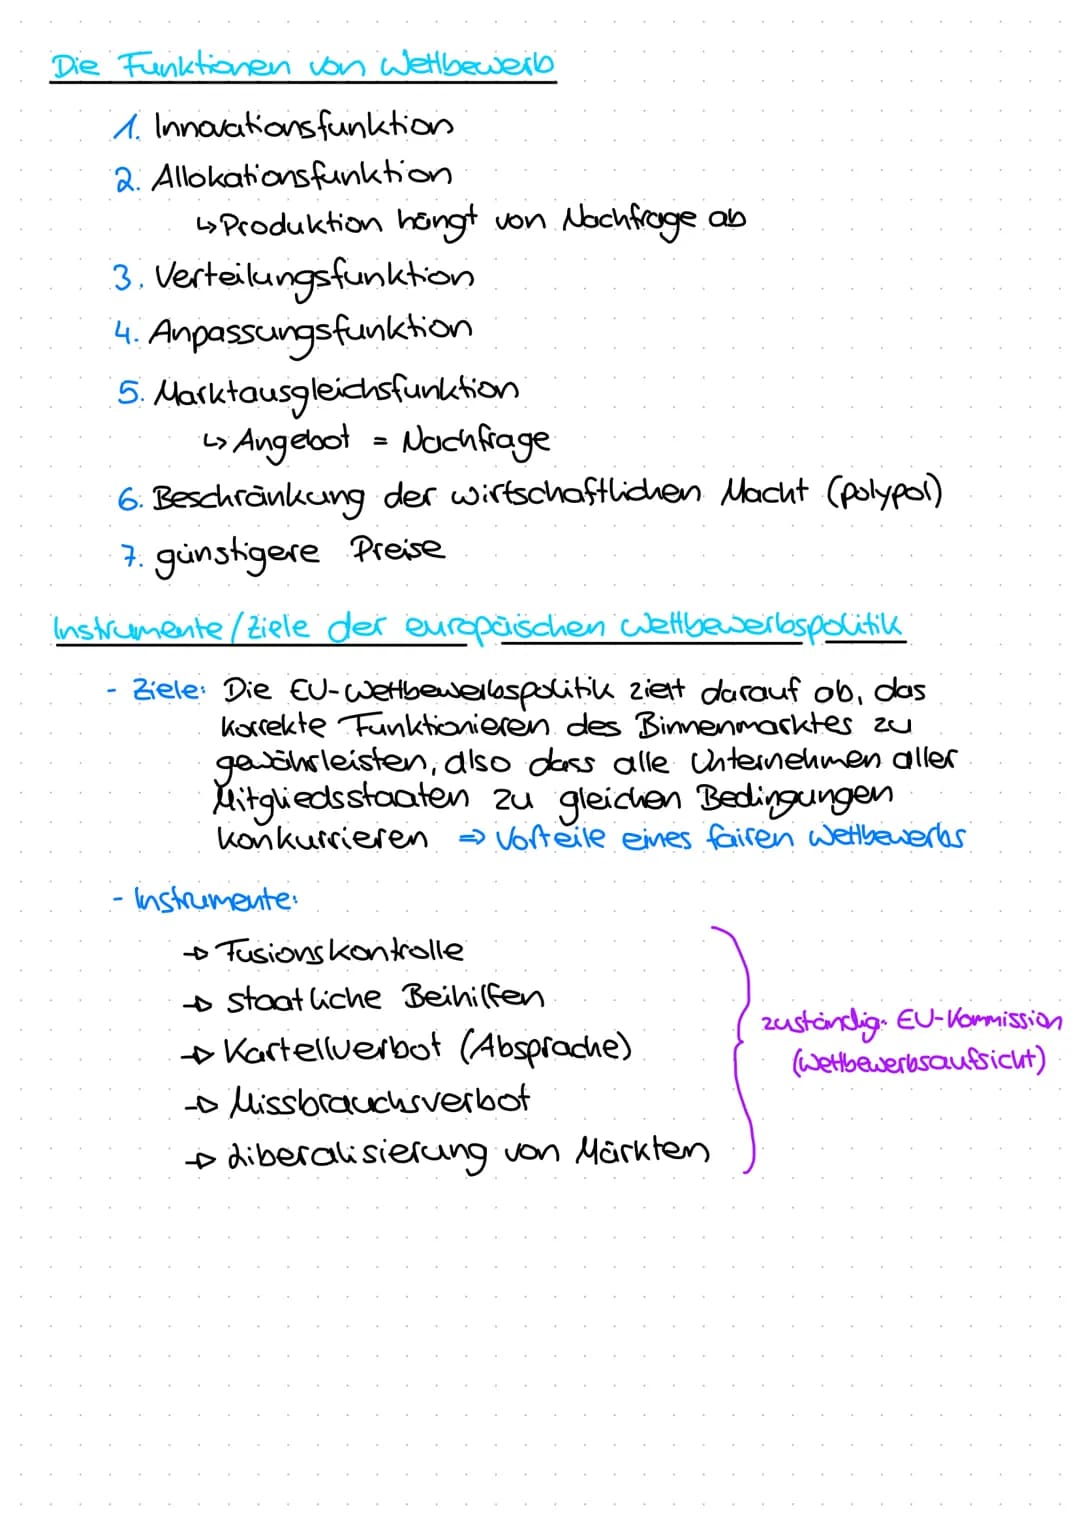 Die Funktionen von Wettbewerb
1. Innovationsfunktion
2. Allokationsfunktion
↳ Produktion hängt von Nachfrage ab
3. Verteilungsfunktion
4. Anpassungsfunktion
5. Marktausgleichsfunktion
↳ Angebot = Nachfrage
6. Beschränkung der wirtschaftlichen Macht (polypol)
7. günstigere Preise
Instrumente/Ziele der europäischen Wettbewerbspolitik
- Ziele: Die EU-Wettbewerbspolitik zielt darauf ab, das
korrekte Funktionieren des Binnenmarktes zu
gewährleisten, also dass alle Unternehmen aller
Mitgliedsstaaten zu gleichen Bedingungen
konkurrieren ⇒ Vorteile eines fairen Wettbewerbs
- Instrumente:
→ Fusionskontrolle
→ staatliche Beihilfen
→ Kartellverbot (Absprache)
→ Missbrauchsverbot
→ Liberalisierung von Märkten
zuständig: EU-Kommission
(Wettbewerbsaufsicht)